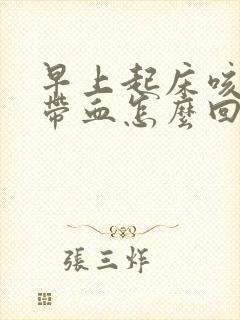 早上起床咳
帶血怎麼回
張三炸